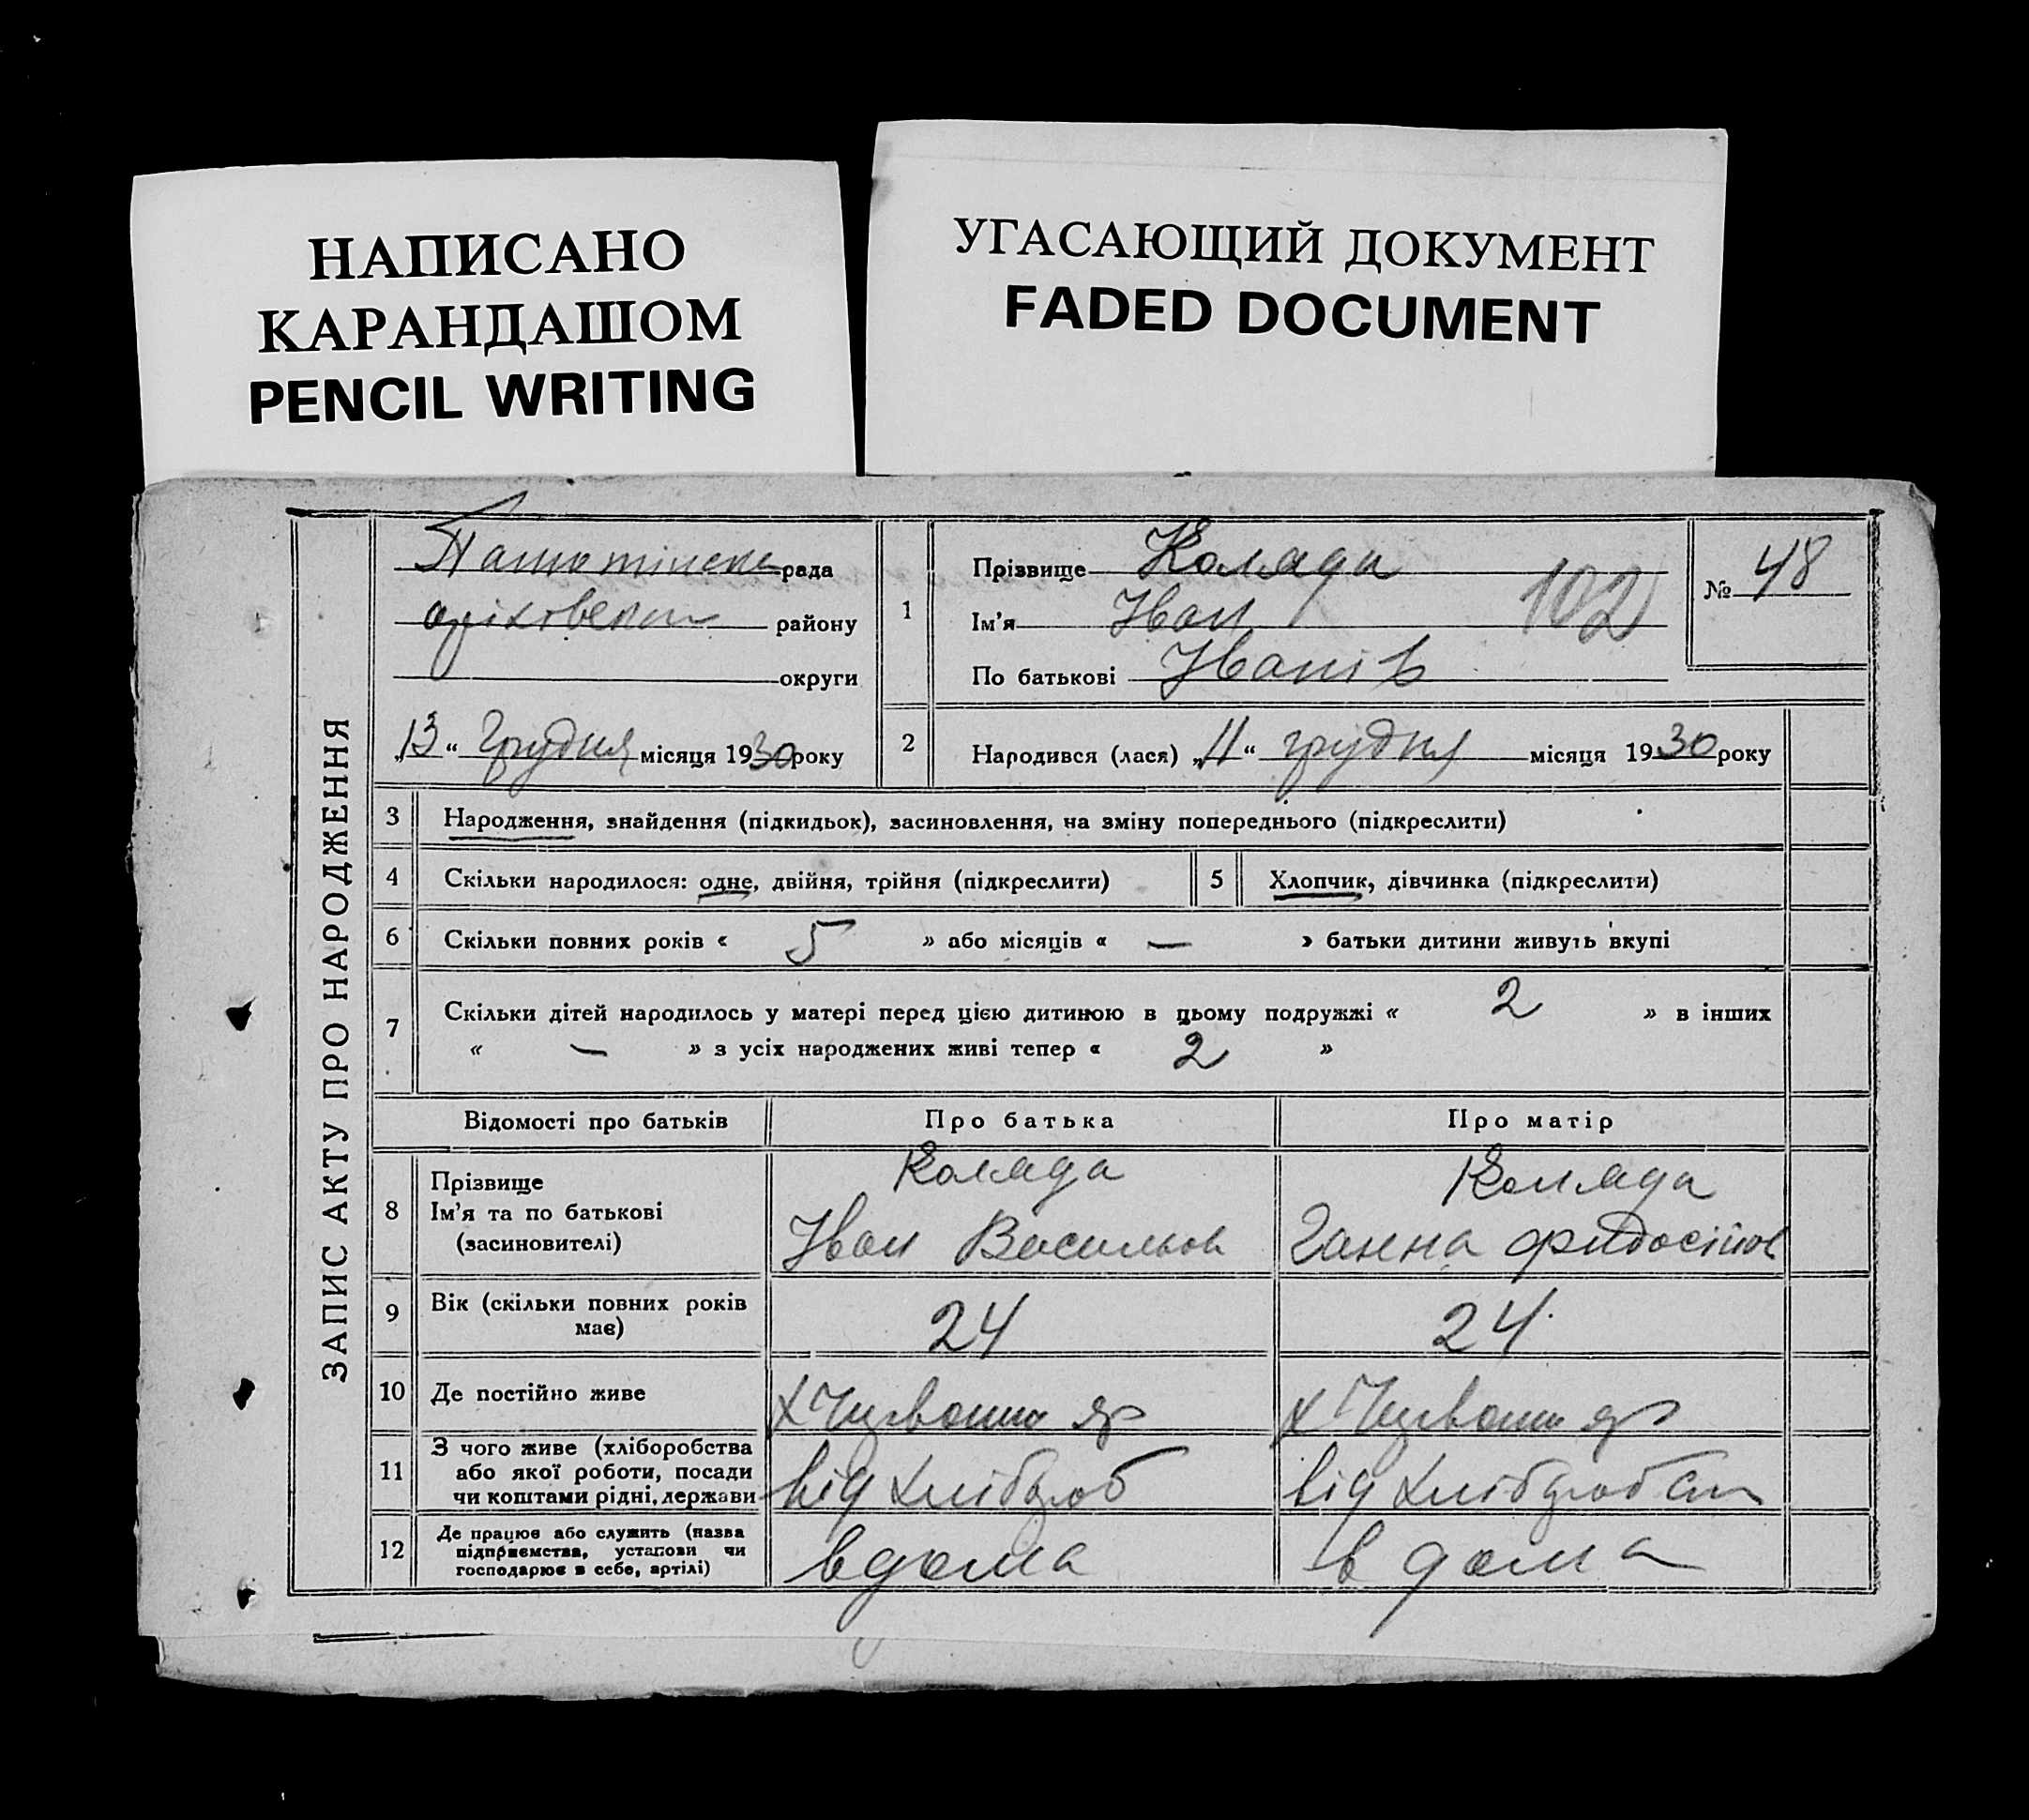 НАПИСАНО
КАРАНДАШОМ
PENCIL WRITING
УГАСАЮЩИЙ ДОКУМЕНТ
FADED DOCUMENT
ЗАПИС АКТУ ПРО НАРОДЖЕННЯ
рада
району
округи
„13“ Грудня місяця 1930 року
1
Прізвище Коляда
Ім'я Іван
По батькові Іванів
102
№ 48
2
Народився (лася) „11“ грудня місяця 1930 року
3 Народження, знайдення (підкидьок), засиновлення, на зміну попереднього (підкреслити)
4 Скільки народилося: одне, двійня, трійня (підкреслити)
5 Хлопчик, дівчинка (підкреслити)
6 Скільки повних років « 5 » або місяців « — » батьки дитини живуть вкупі
7 Скільки дітей народилось у матері перед цією дитиною в цьому подружжі « 2 » в інших
« — » з усіх народжених живі тепер « 2 »
Відомості про батьків Про батька Про матір
8 Прізвище Коляда Коляда
Ім'я та по батькові Іван Васильов Ганна
(засиновителі)
9 Вік (скільки повних років 24 24
має)
10 Де постійно живе х Червоний яр х Червоний яр
11 З чого живе (хліборобства
або якої роботи, посади
чи коштами рідні, держави від хлібороб від
12 Де працює або служить (назва
підприємства, установи чи
господарює в себе, артілі) вдома в дома